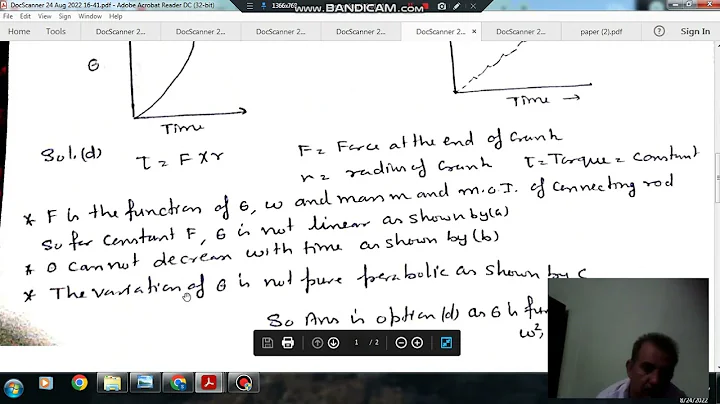 DocScanner 24 Aug 2022 16-41.pdf - Adobe Acrobat Reader DC (32-bit)
1366x768
WWW.BANDICAM.COM
File Edit View Window Help
Home Tools DocScanner 2... DocScanner 2... DocScanner 2... DocScanner 2... DocScanner 2... × DocScanner 2... paper (2).pdf Sign In
θ
Time
Time →
Sol.(d) τ = F×r
F = Force at the end of Crank
r = radius of Crank τ = Torque = constant
* F is the function of θ, ω and mass m and m.o.I. of connecting rod
So for constant F, θ is not linear as shown by (a)
* θ cannot decrease with time as shown by (b)
* The variation of θ is not pure parabolic as shown by c
So Ans is option (d) as θ is
ω²,
1 / 2
8/24/2022